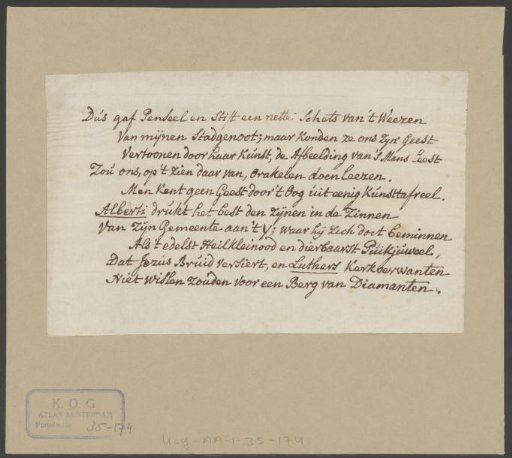 Dús gaf Penseel en Stift een nette Schets van 't Weezen
Van mijnen Stadgenoot; maar konden ze ons Zijn' Geest
Vertoonen door haar Kúnst, de Afbeelding van 's Mans Leest
Zou ons, op 't Zien daar van, Orakelen doen Leezen.
Men kent geen Geest door 't Oog uit eenig Kúnsttafreel.
Alberti drúkt het best den Zijnen in de Zinnen
Van Zijn Gemeente aan 't Y; waar hij zich doet beminnen
Als 't edelst Heilkleinood en dierbaarst Púikjúweel,
Dat Jezús Brúid versiert, en Luthers Kerkverwanten
Niet Willen Zouden voor een Berg van Diamanten.
K O G
ATLAS AMSTERDAM
35-174
kog-AA-1-35-174